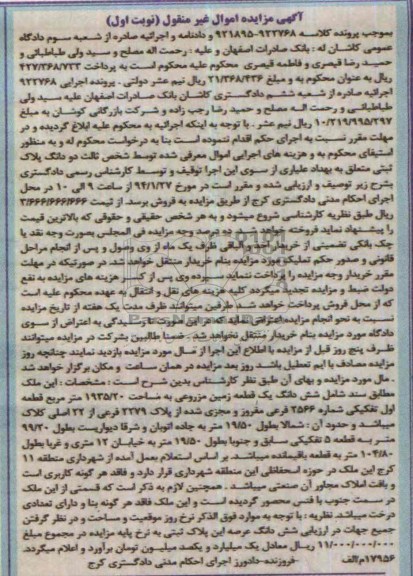 آگهی مزایده اموال غیر منقول (نوبت اول)
بموجب پرونده کلاسه ۹۲۲۷۶۸-۹۲۱۸۹۵ و دادنامه و اجرائیه صادره از شعبه سوم دادگاه
عمومی کاشان له : بانک صادرات اصفهان و علیه : رحمت اله مصلح و سید ولی طباطبائی و
حمید رضا قیصری و فاطمه قیصری محکوم علیه محکوم است به پرداخت ۴۲۷/۳۶۸/۷۲۳
ریال به عنوان محکوم به و مبلغ ۲۱/۳۶۸/۴۳۶ ریال نیم عشر دولتی . پرونده اجرایی ۹۲۲۷۶۸
اجرائیه صادره از شعبه ششم دادگستری کاشان بانک صادرات اصفهان علیه سید ولی
طباطبائی و رحمت اله مصلح و حمید رضا رجب زاده و شرکت بازرگانی کوشان به مبلغ
۱۰/۳۱۹/۹۹۵/۲۹۷ ریال نیم عشر . با توجه به اینکه اجرائیه به محکوم علیه ابلاغ گردیده و در
مهلت مقرر نسبت به اجرای حکم اقدام ننموده است بنا به درخواست محکوم له و به منظور
استیفای محکوم به و هزینه های اجرایی اموال معرفی شده توسط شخص ثالث دو دانگ پلاک
ثبتی متعلق به بهداد علیاری از سوی این اجرا توقیف و توسط کارشناس رسمی دادگستری
بشرح زیر توصیف و ارزیابی شده و مقرر است در مورخ ۹۴/۱/۲۷ از ساعت ۹ الی ۱۰ در محل
اجرای احکام مدنی دادگستری کرج از طریق مزایده به فروش برسد. از قیمت ۳/۶۶۶/۶۶۶/۶۶۶
ریال طبق نظریه کارشناسی شروع میشود و به هر شخص حقیقی و حقوقی که بالاترین قیمت
را پیشنهاد نماید فروخته خواهد شد. ده درصد وجه مزایده فی المجلس بصورت وجه نقد یا
چک بانکی تضمینی از خریدار اخذ و الباقی ظرف یک ماه از وی وصول و پس از انجام مراحل
قانونی و صدور حکم تملیک مورد مزایده بنام خریدار منتقل خواهد شد. در صورتیکه در مهلت
مقرر خریدار وجه مزایده را پرداخت ننماید سپرده وی پس از کسر هزینه های مزایده به نفع
دولت ضبط و مزایده تجدید میگردد کلیه هزینه های نقل و انتقال به عهده محکوم علیه است
که از محل فروش پرداخت خواهد شد. طرفین میتوانند ظرف مدت یک هفته از تاریخ مزایده
نسبت به نحو انجام مزایده اعتراض نماید که در این صورت تا رسیدگی به اعتراض از سوی
دادگاه مورد مزایده بنام خریدار منتقل نخواهد شد. ضمنا طالبین بشرکت در مزایده میتوانند
ظرف پنج روز قبل از مزایده با اطلاع این اجرا از مال مورد مزایده بازدید نمایند چنانچه روز
مزایده مصادف با ایم تعطیل باشد روز بعد مزایده در همان ساعت و مکان برگزار خواهد شد
. مال مورد مزایده و بهای آن طبق نظر کارشناس بدین شرح است : مشخصات : این ملک
مطابق سند شامل شش دانگ یک قطعه زمین مزروعی به مساحت ۱۹۳۵/۲۰ متر مربع قطعه
اول تفکیکی شماره ۲۵۶۶ فرعی مفروز و مجزی شده از پلاک ۲۲۷۹ فرعی از ۲۲ اصلی کلاک
میباشد و حدود آن : شمالا بطول ۱۹/۵۰ متر به جاده اتوبان و شرقا دیواریست بطول ۹۹/۲۰
متر به قطعه ۵ تفکیکی سابق و جنوبا بطول ۱۹/۵۰ متر به خیابان ۱۲ متری و غربا بطول
۱۰۴/۸۰ متر به قطعه باقیمانده میباشد. بر اساس استعلام بعمل آمده از شهرداری منطقه ۱۱
کرج این ملک در حوزه استحفاظی این منطقه شهرداری قرار دارد و فاقد هر گونه کاربری است
و بافت املاک مجاور آن صنعتی میباشد . همچنین لازم به ذکر است که قسمتی از این ملک
در سمت جنوب با فنس محصور گردیده است و این ملک فاقد هر گونه بنا و دارای تعدادی
درخت میباشد. نظریه : با توجه به موارد فوق الذکر نرخ روز موقعیت و مساحت و در نظر گرفتن
جمیع جهات در ارزیابی شش دانگ عرصه این پلاک ثبتی به نرخ پایه مزایده در مجموع مبلغ
۱۱/۰۰۰/۰۰۰/۰۰۰ ریال معادل یک میلیارد و یکصد میلیون تومان برآورد و اعلام میگردد.
۱۷۹۵۶/م الف فروزنده-دادورز اجرای احکام مدنی دادگستری کرج